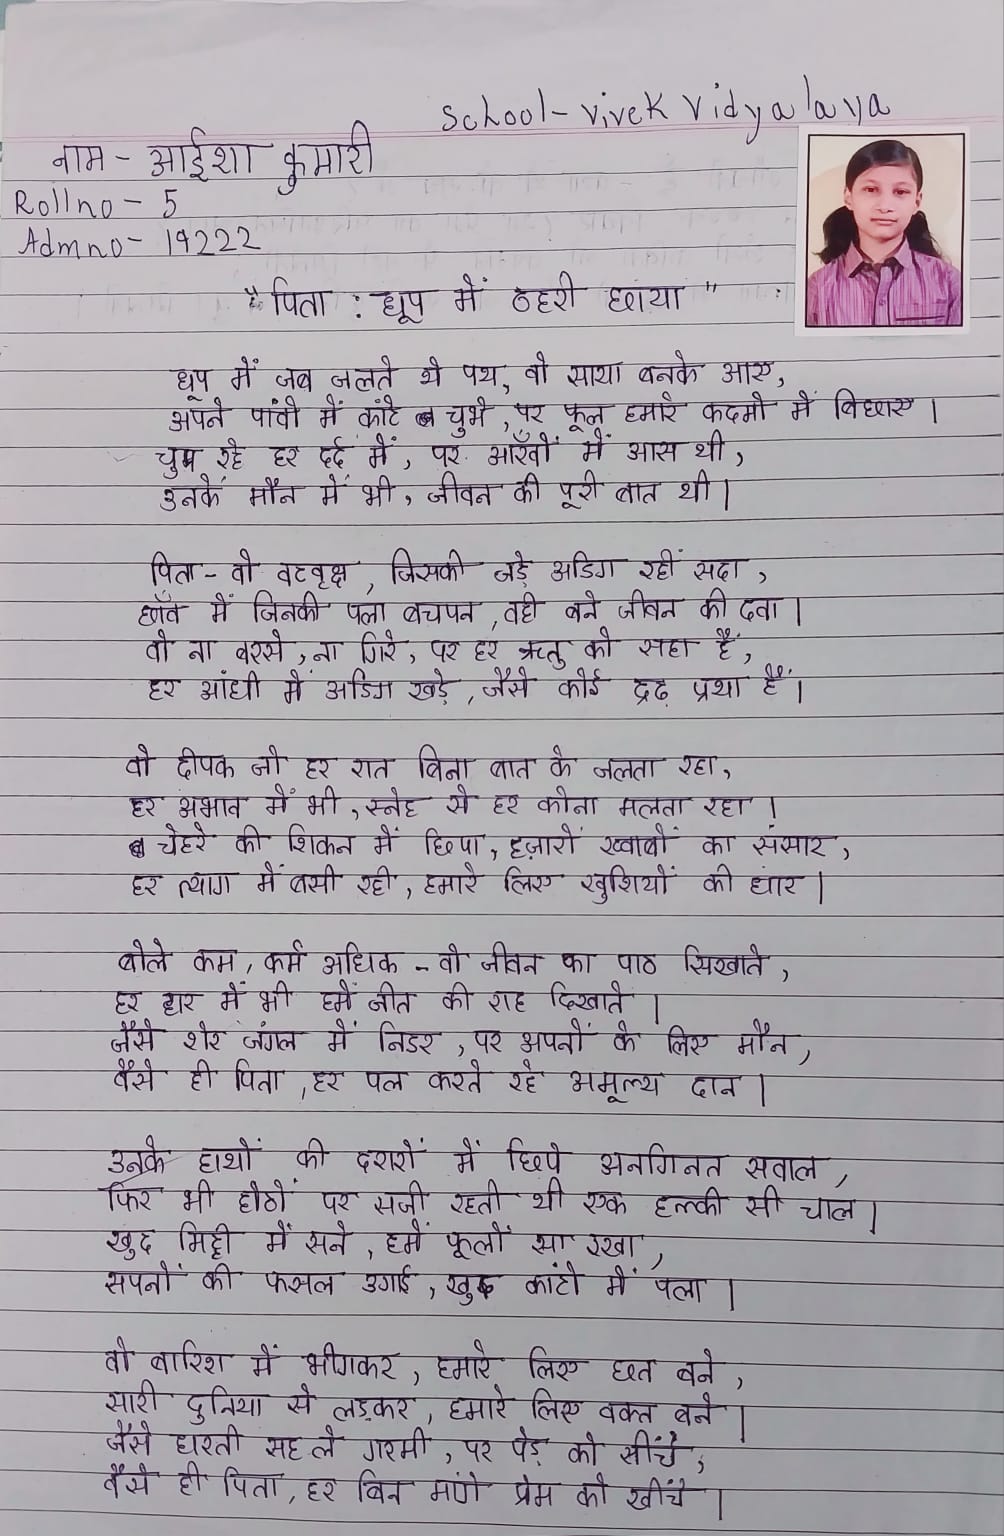 School - Vivek Vidyalaya
नाम - आईशा कुमारी
Rollno - 5
Admno - 19222
"पिता : धूप में ठहरी छाया"
धूप में जब जलते थे पथ, वो साया बनके आए,
अपने पांवो में कांटे चुभे, पर फूल हमारे कदमो में बिछाए।
चुप रहे हर दर्द में, पर आँखों में आस थी,
उनके मौन में भी, जीवन की पूरी बात थी।
पिता - वो वटवृक्ष, जिसकी जड़े अडिग रहीं सदा,
छाँव में जिनकी पला बचपन, वही बने जीवन की दवा।
वो ना बरसे, ना गिरे, पर हर ऋतु को सहा है,
हर आंधी में अडिग खड़े, जैसे कोई द्रढ़ प्रथा है।
वो दीपक जो हर रात बिना बात के जलता रहा,
हर अभाव में भी, स्नेह से हर कोना मलता रहा।
चेहरे की शिकन में छिपा, हज़ारों ख्वाबों का संसार,
हर त्याग में बसी रही, हमारे लिए खुशियों की धार।
बोले कम, कर्म अधिक - वो जीवन का पाठ सिखाते,
हर हार में भी हमें जीत की राह दिखाते।
जैसे शेर जंगल में निडर, पर अपनों के लिए मौन,
वैसे ही पिता, हर पल करते रहे अमूल्य दान।
उनके हाथों की दरारों में छिपे अनगिनत सवाल,
फिर भी होठों पर सजी रहती थी एक हल्की सी चाल।
खुद मिट्टी में सने, हमें फूलों सा रखा,
सपनों की फसल उगाई, खुद कांटो में पला।
वो बारिश में भीगकर, हमारे लिए छत बने,
सारी दुनिया से लड़कर, हमारे लिए वक्त बने।
जैसे धरती सह ले गरमी, पर पेड़ को सींचे,
वैसे ही पिता, हर बिन मांगे प्रेम को खींचे।